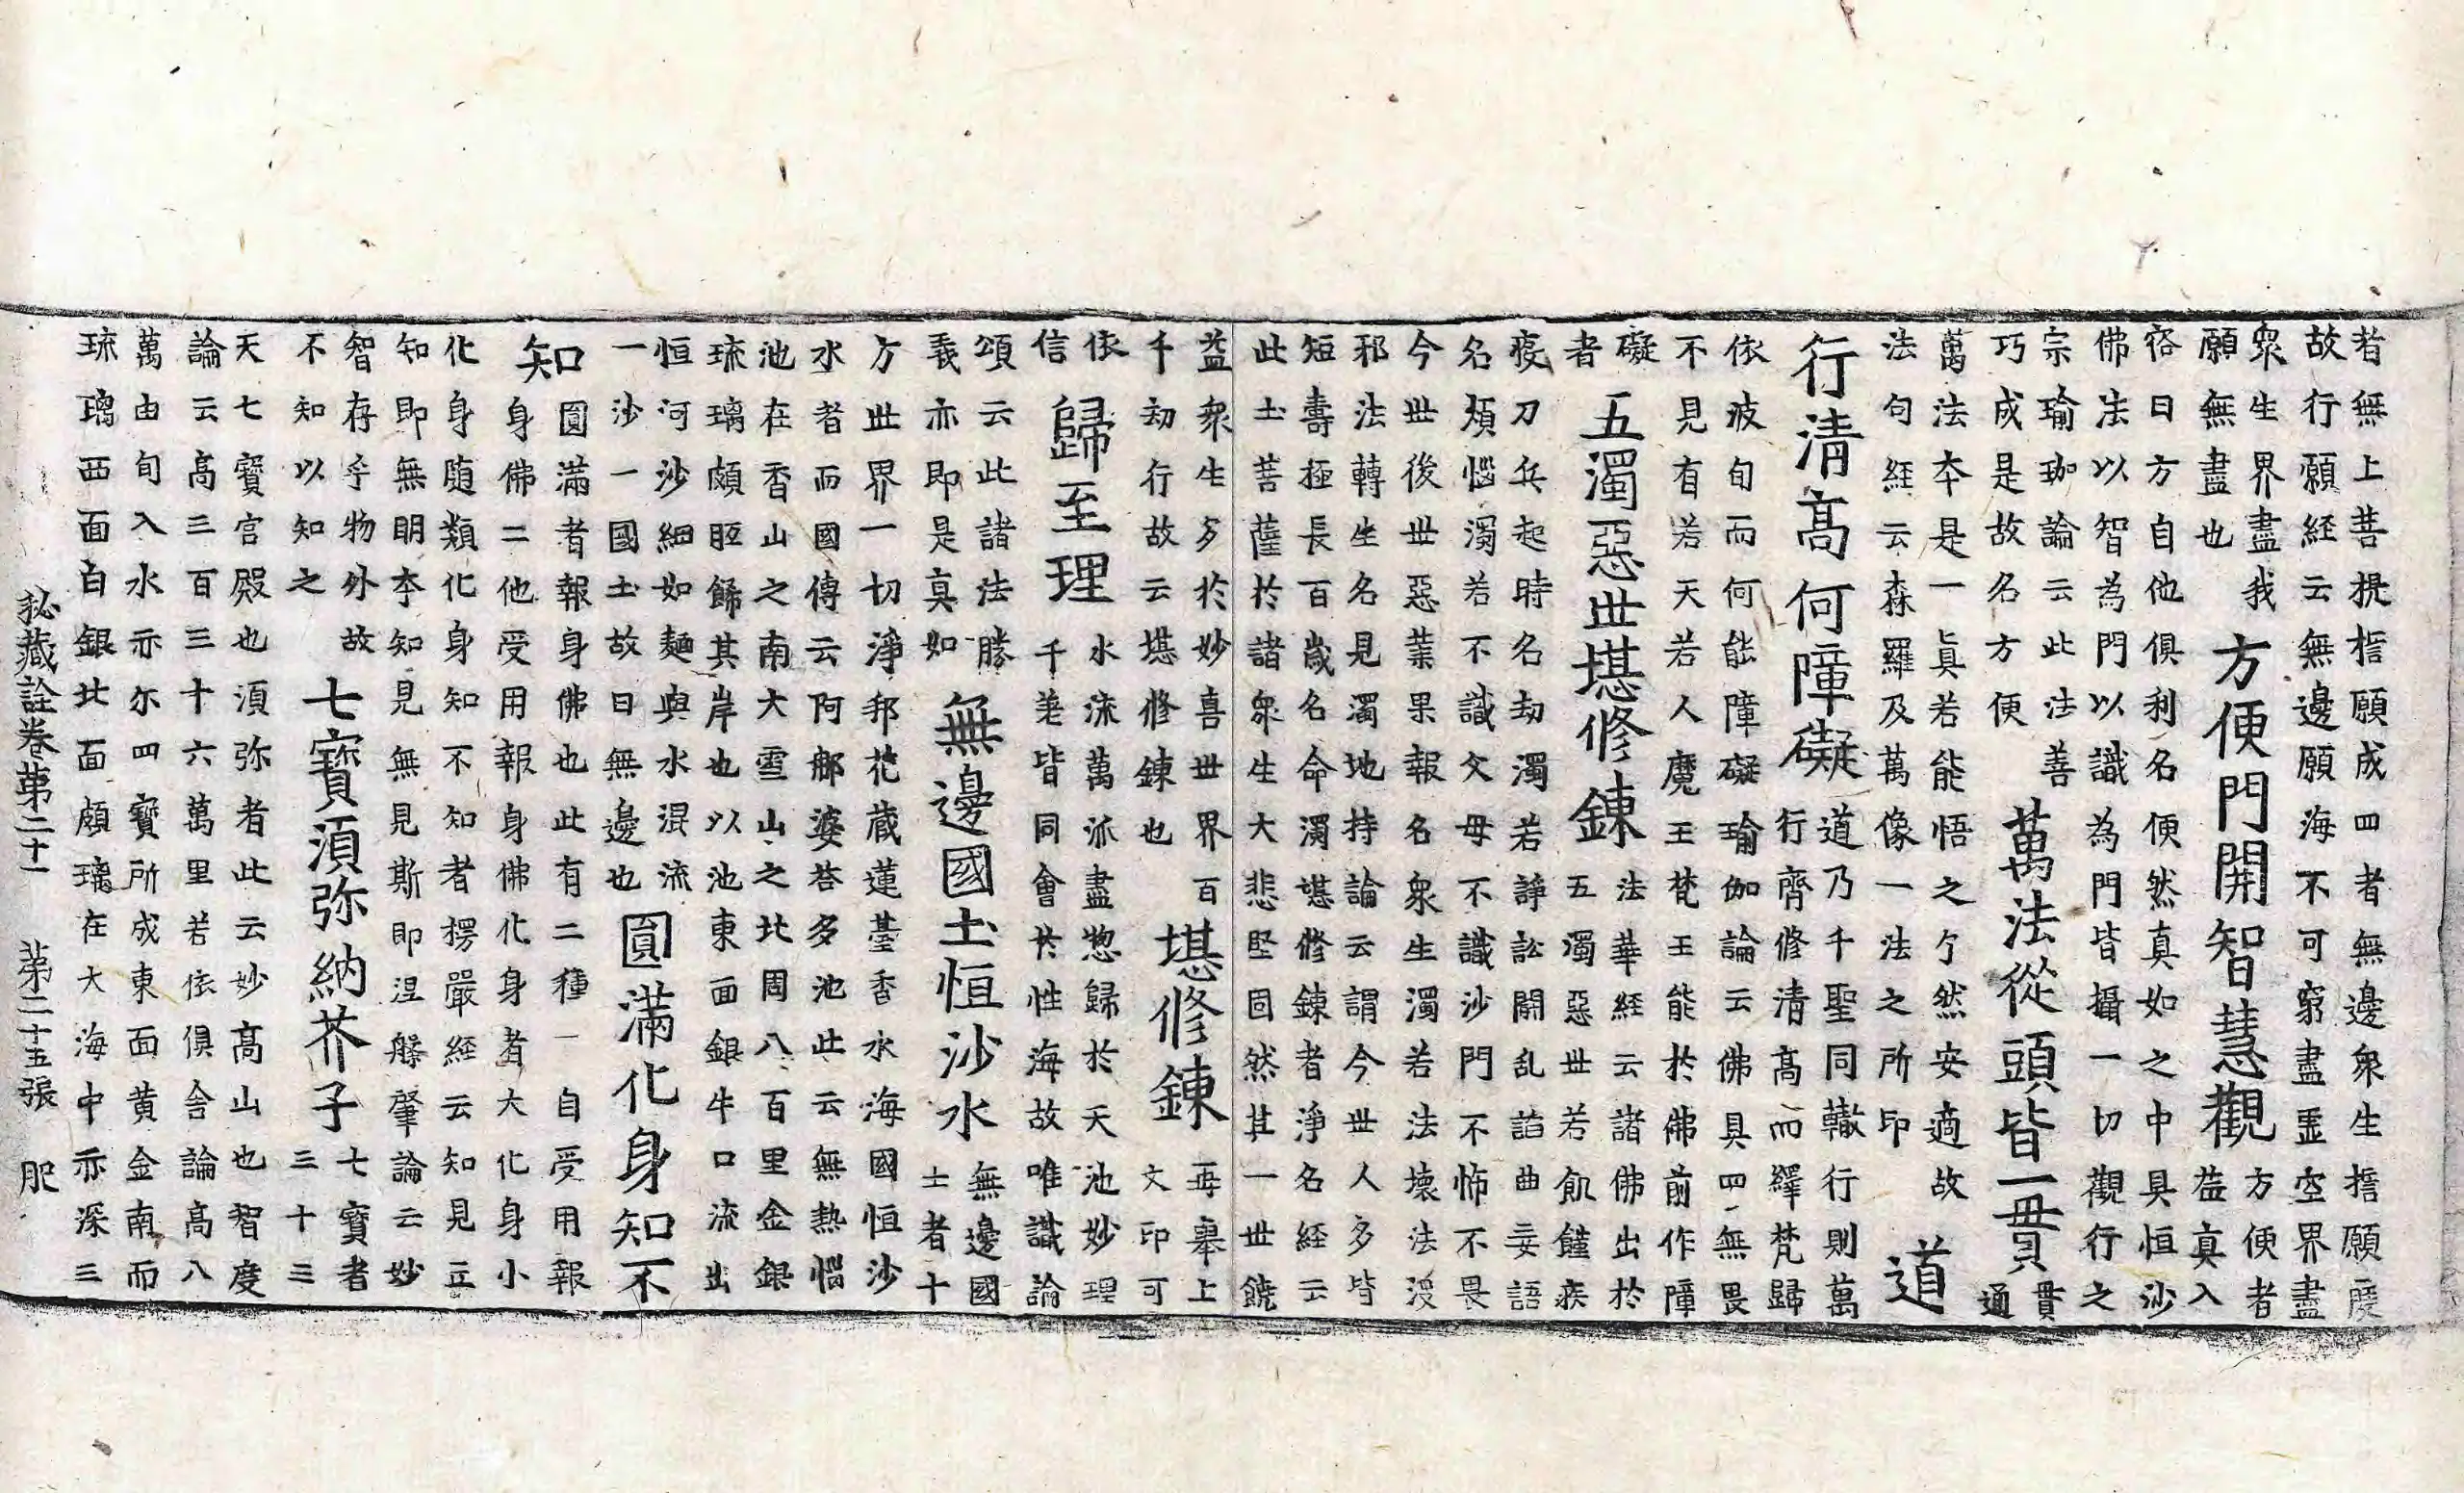 者無上菩提誓願成四者無邊衆生誓願度
故行願經云無邊願海不可窮盡虛空界盡
衆生界盡我
願無盡也
方便門開智慧觀
方便者
益真入
容曰方自他俱利名便然真如之中具恒沙
佛法以智為門以識為門皆攝一切觀行之
宗瑜珈論云此法善
巧成是故名方便
萬法從頭皆一貫
貫
通
萬法本是一真若能悟之兮然安適故
法句経云森羅及萬像一法之所印
道
行清高何障礙
道乃千聖同轍行則萬
行齊修清高而繹梵歸
依波旬而何能障礙瑜伽論云佛具四無畏
不見有若天若人魔王梵王能於佛前作障
礙
者
五濁惡世堪修鍊
法華経云諸佛出於
五濁惡世若飢饉疾
疫刀兵起時名劫濁若諍訟鬪乱諂曲妄語
名煩惱濁若不識父母不識沙門不怖不畏
今世後世惡業果報名衆生濁若法壞法沒
邪法轉生名見濁地持論云謂今世人多皆
短壽極長百歲名命濁堪修鍊者淨名経云
此土菩薩於諸衆生大悲堅固然其一世饒
益衆生多於妙喜世界百
千劫行故云堪修鍊也
堪修鍊
再舉上
文印可
依
信
歸至理
水流萬派盡惣歸於天池妙理
千差皆同會於性海故唯識論
頌云此諸法勝
義亦即是真如
無邊國土恒沙水
無邊國
士者十
方世界一切淨邦花藏蓮臺香水海國恒沙
水者而國傳云阿耨婆荅多池此云無熱惱
池在香山之南大雪山之北周八百里金銀
琉璃頗胝餙其岸也以池東面銀牛口流出
恒河沙細如麵與水混流
一沙一國土故曰無邊也
圓滿化身知不
知
圓滿者報身佛也此有二種一自受用報
身佛二他受用報身佛化身者大化身小
化身随類化身知不知者楞嚴経云知見立
知即無明本知見無見斯即涅槃肇論云妙
智存乎物外故
不知以知之
七寶須弥納芥子
七寶者
三十三
天七寶宮殿也須弥者此云妙高山也智度
論云高三百三十六萬里若依俱舍論高八
萬由旬入水亦尔四寶所成東面黄金南而
琉璃西面白銀北面頗璃在大海中亦深三
秘藏詮卷第二十一 第二十五張 肥